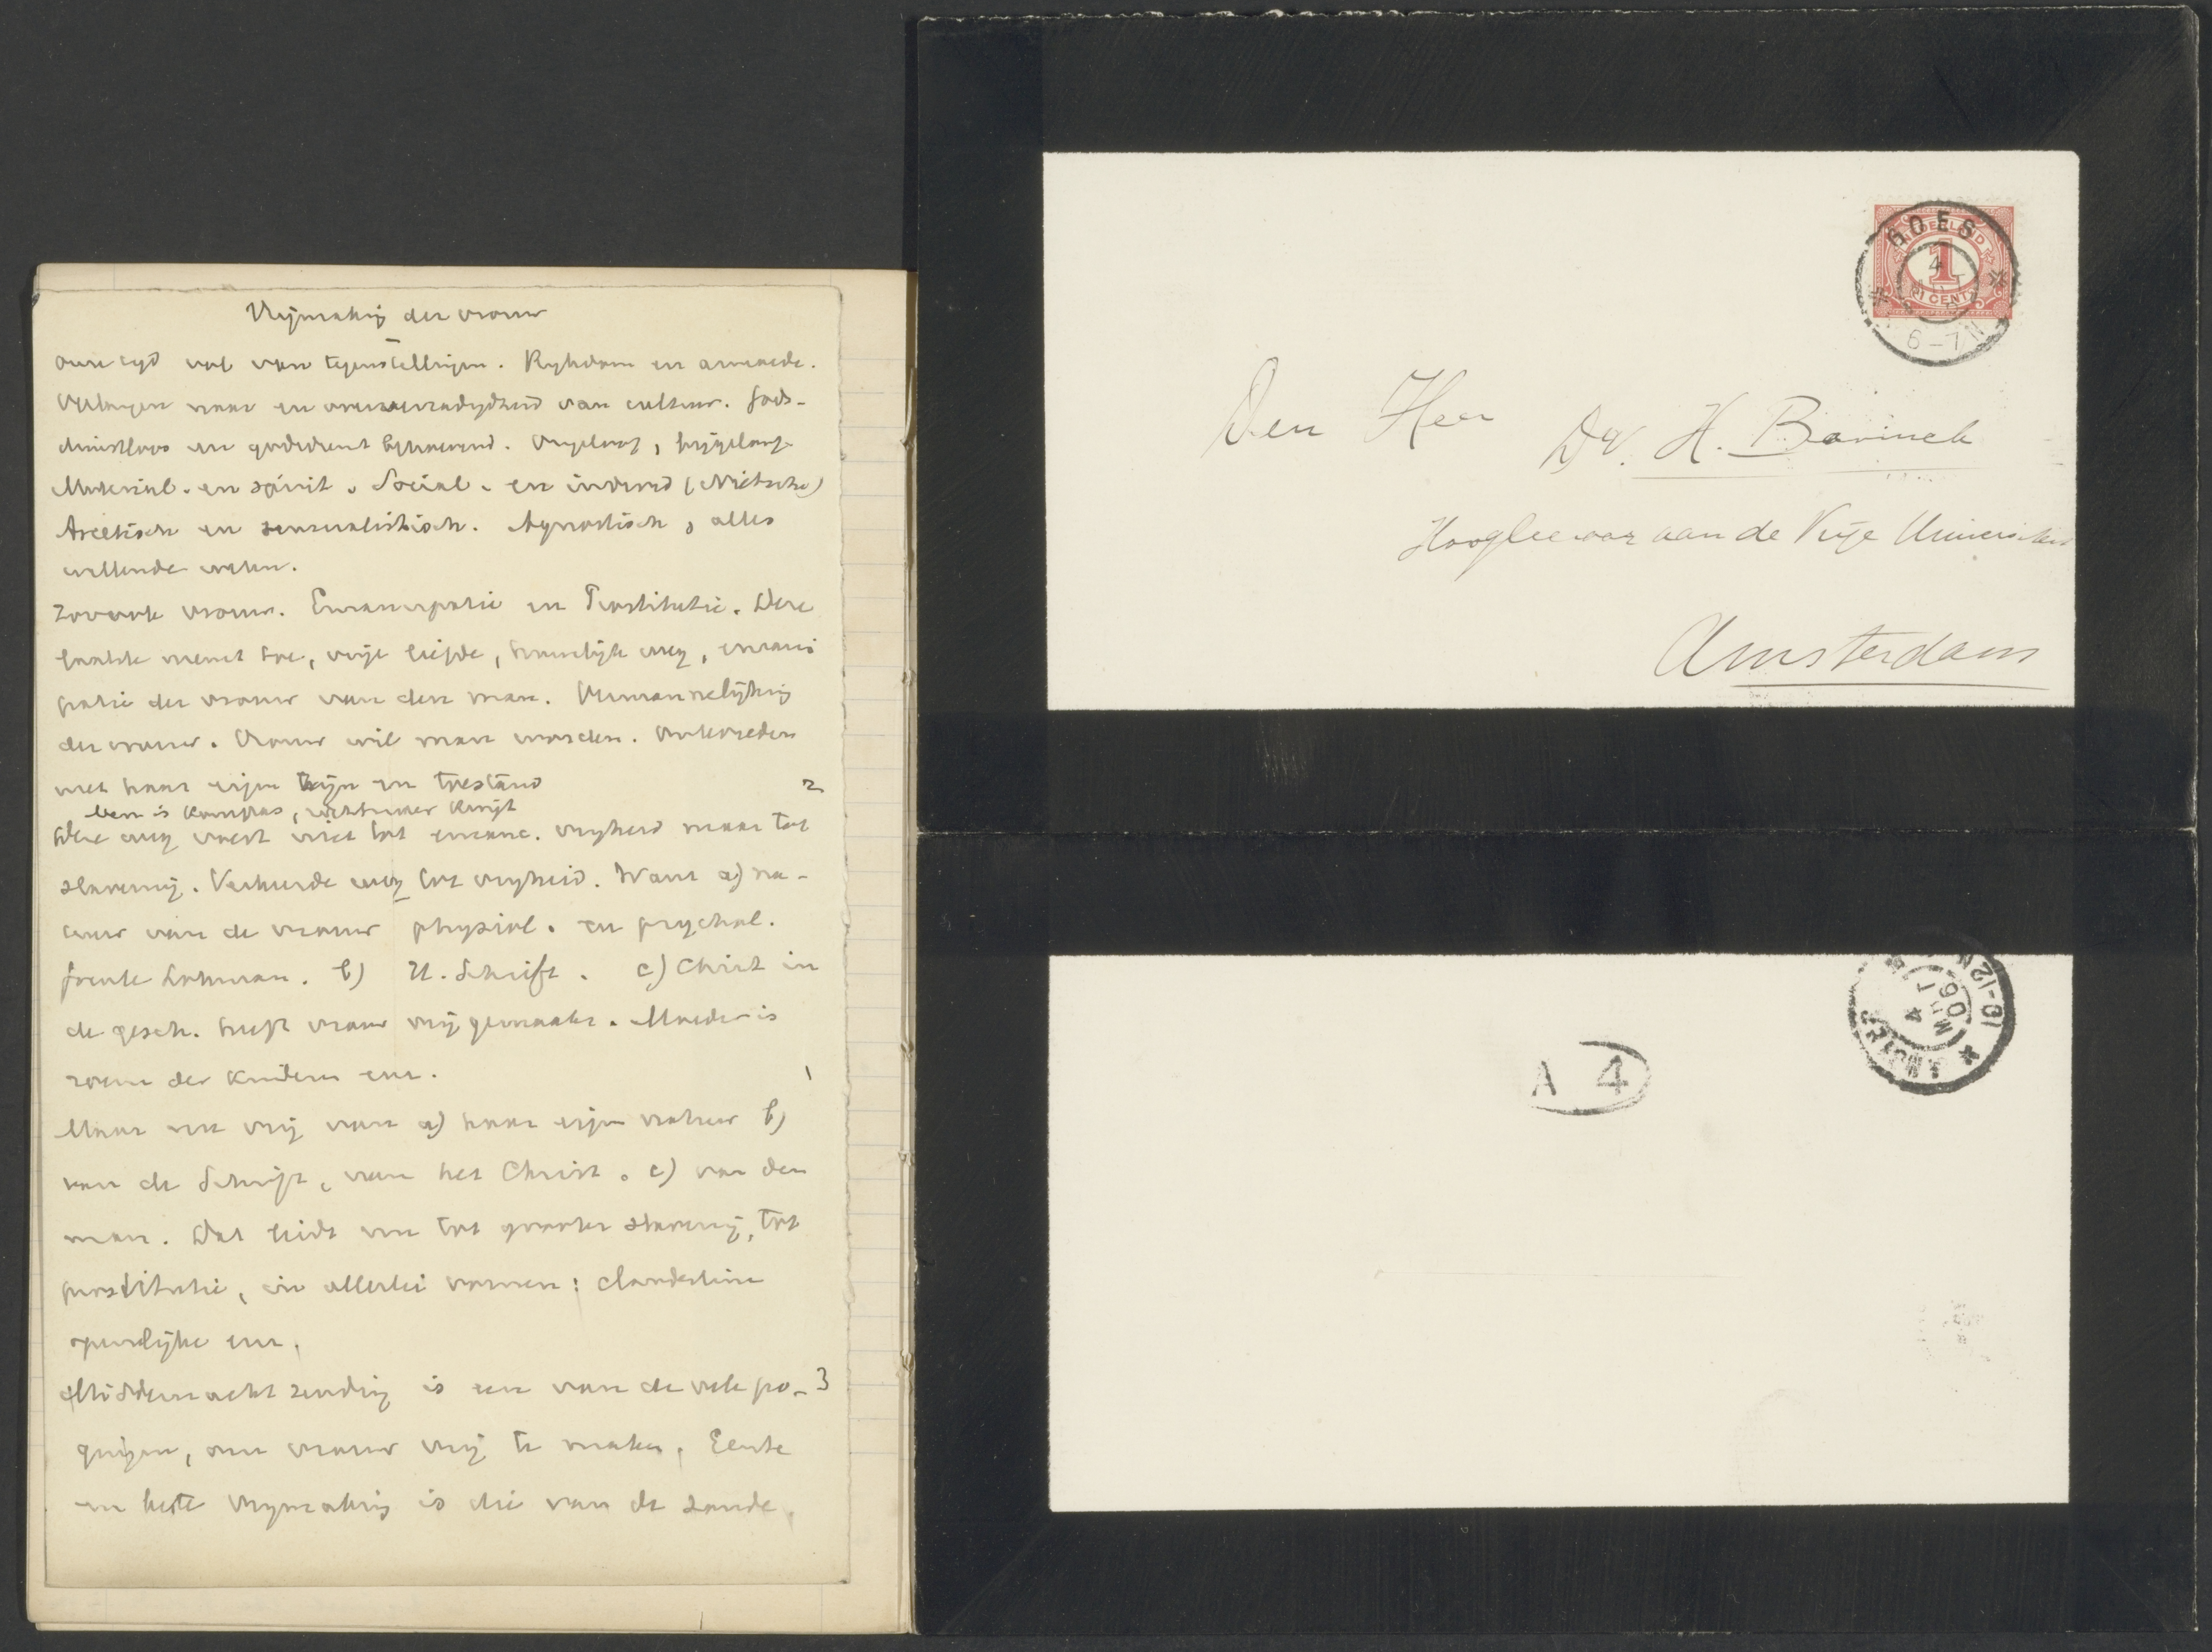 Vrijmaking der vrouw
onze tijd vol van tegenstellingen. Rijkdom en armoede.
Verlangen naar en onvoldaanheid van cultuur. Gods-
dienstloos en godsdienst behoevend. Ongeloof, bijgeloof
Material. en spirit. Social. en individ (Nietsche)
Ascetisch en sensualistisch. Agnostisch, alles
willende weten.
Zoo ook vrouw. Emancipatie en Prostitutie. Deze
laatste neemt toe, vrije liefde, huwelijk weg, emanci
patie der vrouw van den man. Vermannelijking
der vrouw. Vrouw wil man worden. Ontevreden
met haar eigen zijn en toestand 2
een is kompas, ander knijpt
Deze weg voert niet tot emanc. vrijheid maar tot
slavernij. Verkeerde weg tot vrijheid. Want a) na-
tuur van de vrouw physiol. en psychol.
freule Lohman. b) H. Schrift. c) Christ in
de gesch. heeft vrouw vrij gemaakt. Moeder is
der kinderen enz. 1
Maar nu vrij van a) haar eigen natuur b)
van de Schrift, van het Christ. c) van den
man. Dat leidt nu tot grooter slavernij, tot
prostitutie, in allerlei vormen: clandestine
openlijke enz.
Middernachtzending is een van de vele po- 3
gingen, om vrouw vrij te maken. Eerste
en beste vrijmaking is die van de zonde.
GOES
NEDERLAND
1
CENT
4
6-7N
Den Heer Dr. H. Bavinck
Hoogleeraar aan de Vrije Universiteit
Amsterdam
AMSTER
4 MRT 06
10-12N
A 4